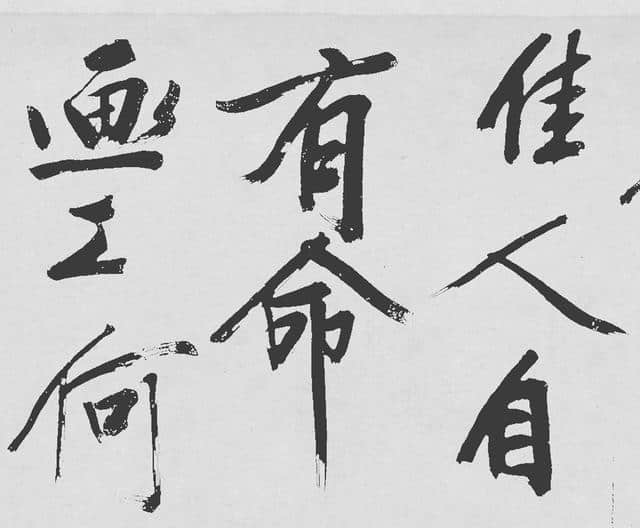 佳人自
有命
畫工何